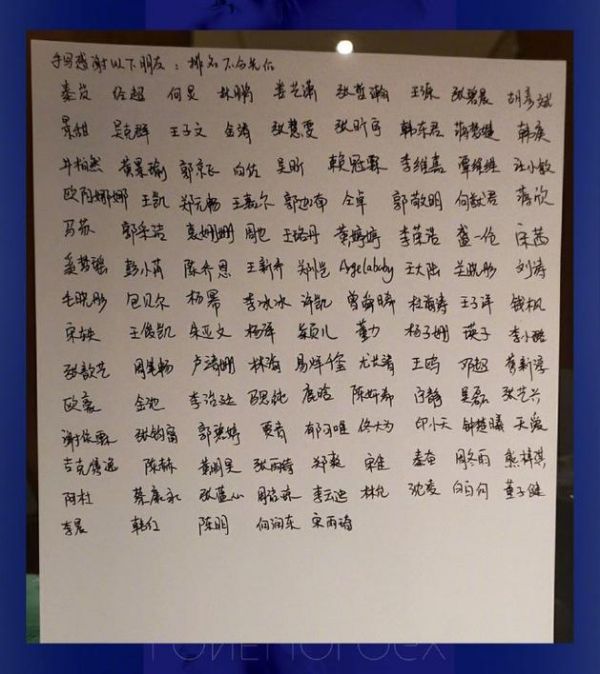 手写感谢以下朋友：排名不分先后
秦岚 任超 何炅 林鹏 姜芝潇 张哲瀚 王源 张碧晨 胡彦斌
景甜 吴克群 王子文 金涛 张慧雯 张昕宇 韩东君 蒋梦婕 韩庚
井柏然 黄景瑜 郭京飞 白佐 吴昕 赖冠霖 李维嘉 谭维维 汪小敏
欧阳娜娜 王凯 郑元畅 王嘉尔 郭迦南 仝卓 郭敬明 何猷君 蒋欣
马苏 郭采洁 袁姗姗 周也 王珞丹 黄婷婷 李荣浩 盛一伦 宋茜
孟梦瑶 彭小苒 陈乔恩 王新乔 郑恺 Agelababy 王大陆 兰晓彤 刘涛
毛晓彤 包贝尔 杨幂 李冰冰 许凯 曾舜晞 杜海涛 王子洋 钱枫
宋轶 王俊凯 朱亚文 杨洋 颖儿 董力 杨子姗 瑛子 李小璐
张歆艺 周笔畅 卢靖姗 林海 易烊千玺 尤长靖 王鸥 邓超 蔡新淳
欧豪 金池 李治廷 鹿晗 陈妍希 宁静 吴磊 张艺兴
谢依霖 张钧甯 郭碧婷 贾青 郁可唯 佟大为 印小天 钟楚曦 天爱
吉克隽逸 陈赫 黄渤昊 张雨绮 郑爽 宋佳 秦奋 周冬雨 熊梓淇
阿杜 蔡康永 张蓝心 周依琼 李云迪 林允 沈凌 白百何 董子健
李晨 韩红 陈明 何润东 宋雨琦